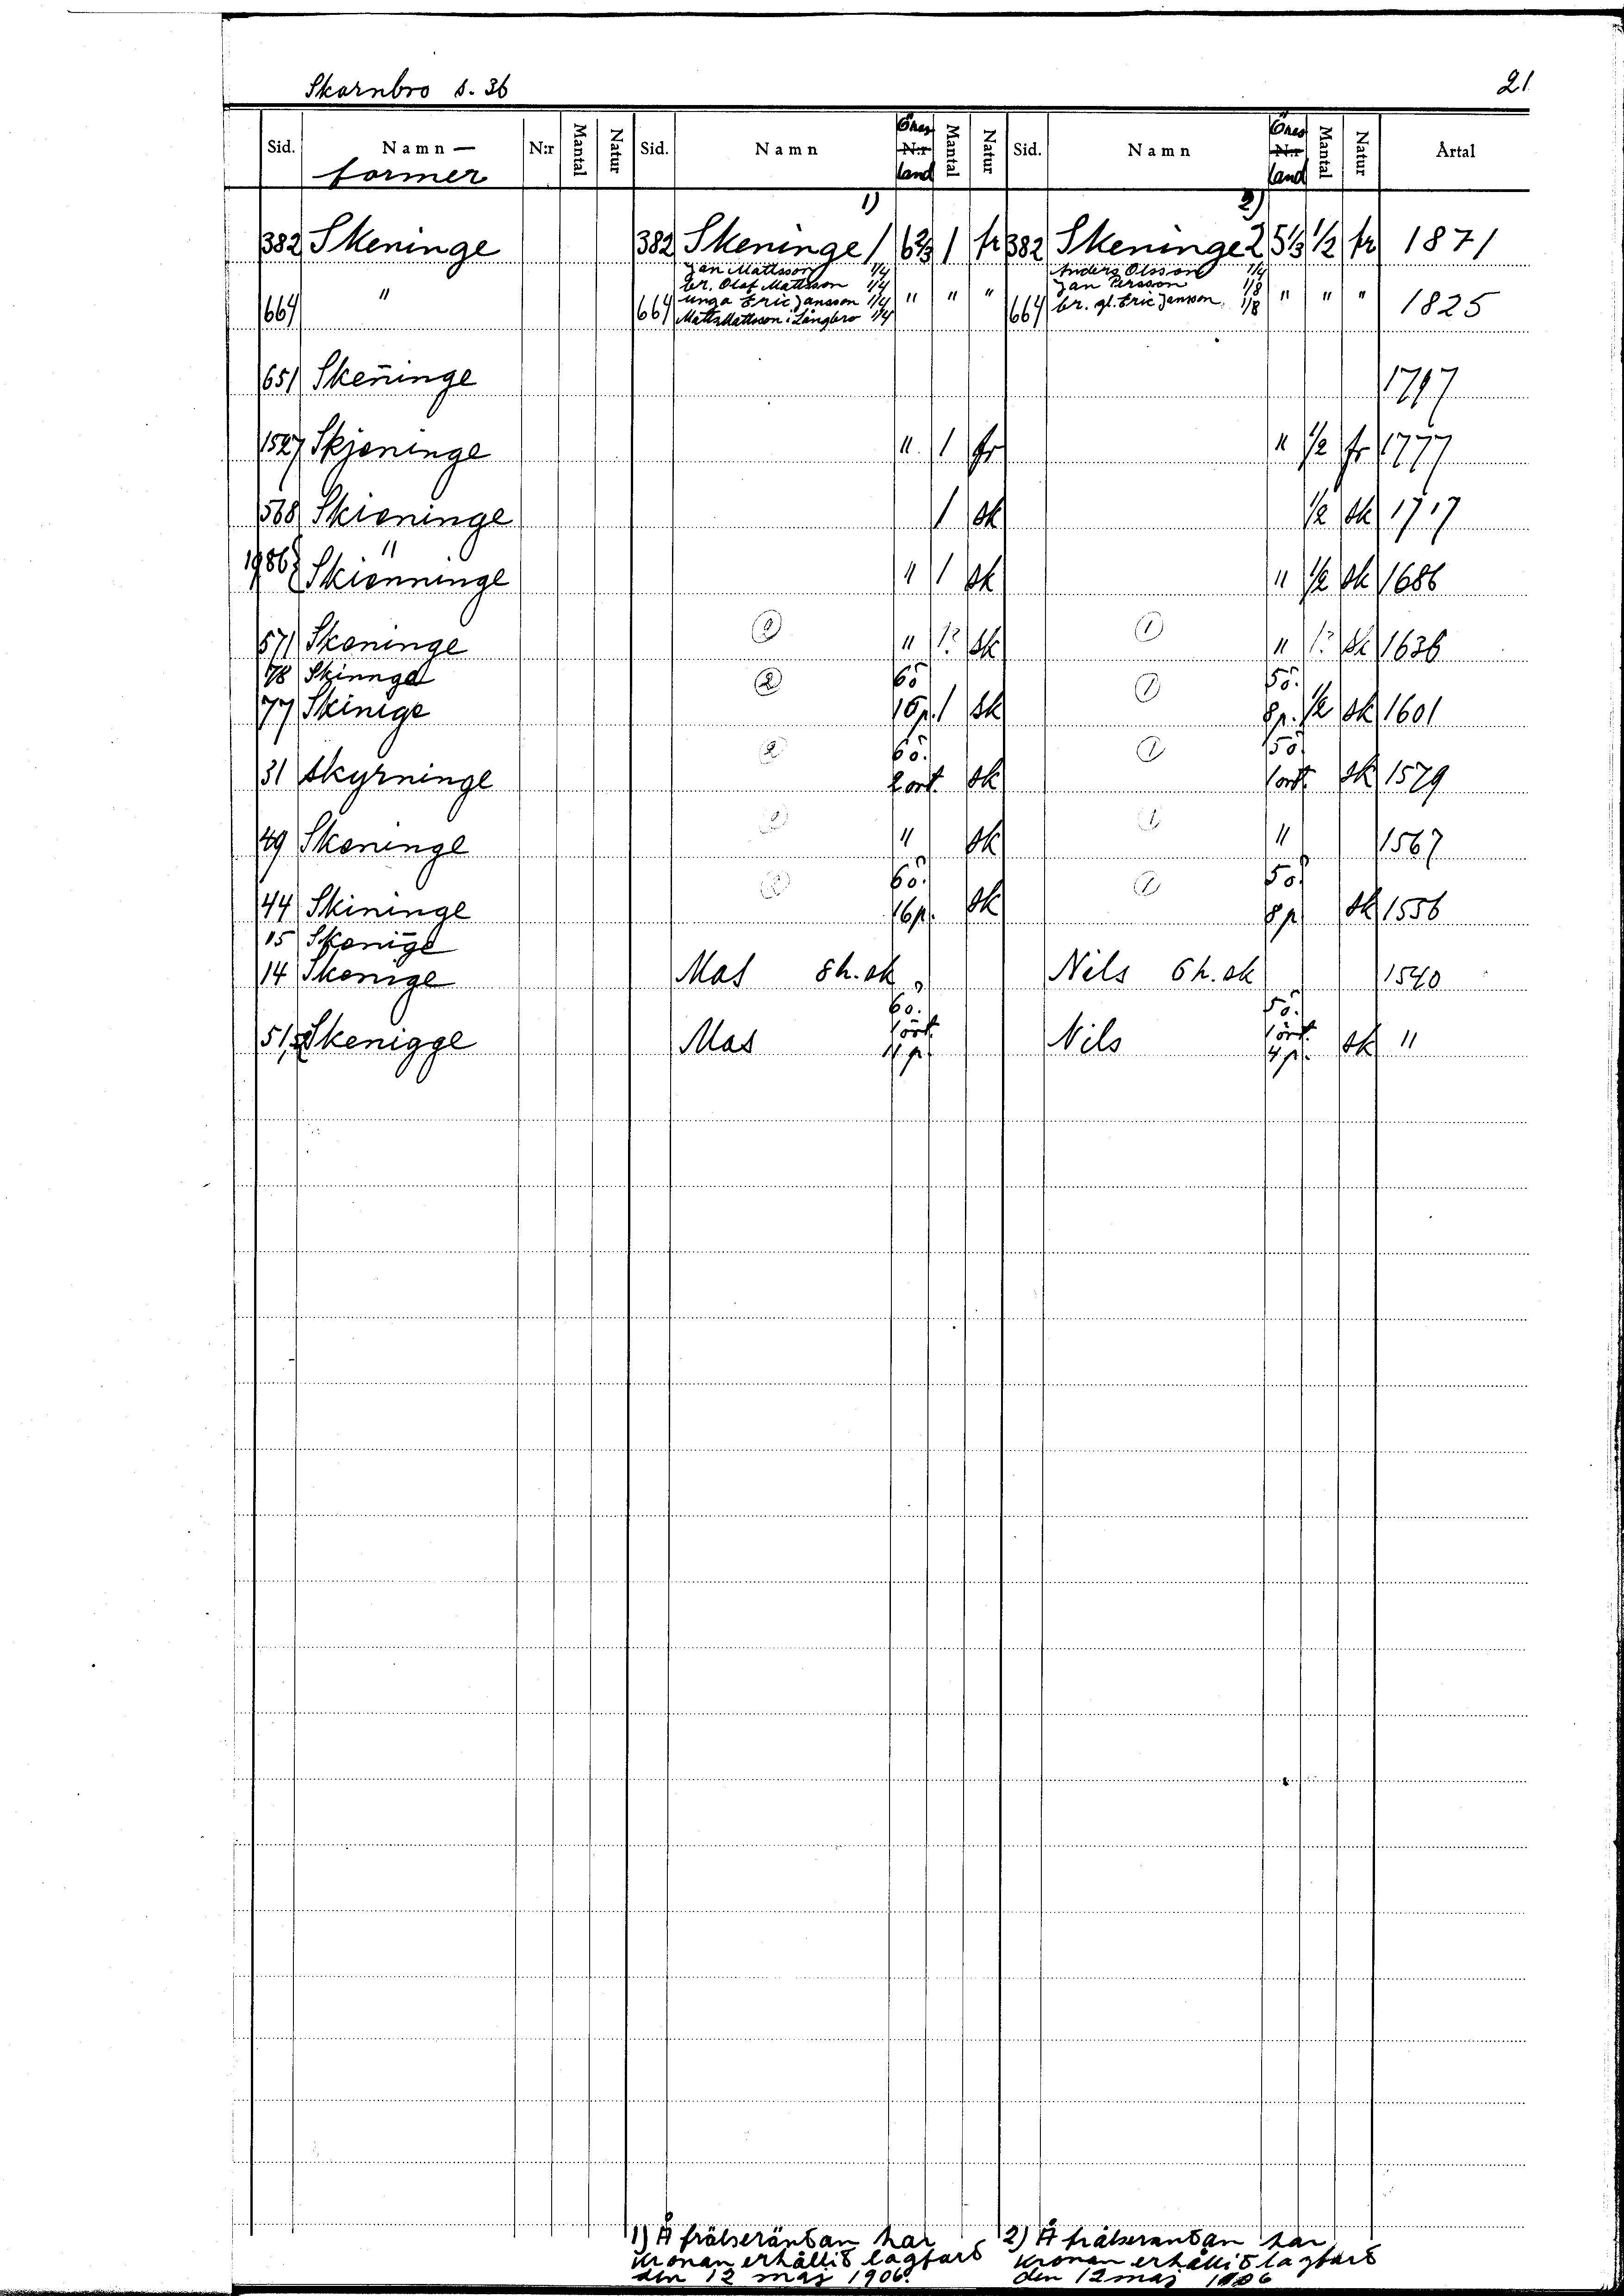 Skarnbro s. 36 21
Sid. Namn— former N:r Mantal Natur Sid. Namn Öres N:r land Mantal Natur Sid. Namn Öres N:r land Mantal Natur Årtal
1) 2)
382 Skeninge 382 Skeninge 1 6 2/3 1 fr 382 Skeninge 2 5 1/3 1/2 fr 1871
Jan Mattsson 1/4 Anders Olsson 1/4
br. Olof Mattsson 1/4 Jan Persson 1/8
664 " 664 unga Eric Jansson 1/4 " " " 664 br. gl. Eric Jansson 1/8 " " " 1825
Matts Mattsson i Långbro 1/4
651 Skeninge 1797
1527 Skjeninge " 1 fr " 1/2 fr 1777
568 Skieninge 1 sk 1/2 sk 1717
1986 { "
Skienninge " 1 sk " 1/2 sk 1686
571 Skeninge 2 " 1? sk 1 " 1? sk 1636
78 Skinnge 2 6ö 1 5ö.
77 Skinige 16p. 1 sk 8p. 1/2 sk 1601
2 6ö. 1 5ö.
31 skyrninge 2 ort. sk 1 ort. sk 1579
49 Skeninge 2 " sk 1 " 1567
2 6ö. 1 5ö.
44 Skininge 16p. sk 8p sk 1556
15 Skenige
14 Skenige Mas 8 h. sk Nils 6 h. sk 1540
6ö. 5ö.
51,52 Skenigge Mas 1 ört. Nils 1 ört. sk "
4 p. 4 p.
1) Å frälseräntan har 2) Å frälseräntan har
kronan erhållit lagfart kronan erhållit lagfart
den 12 maj 1906. den 12 maj 1906